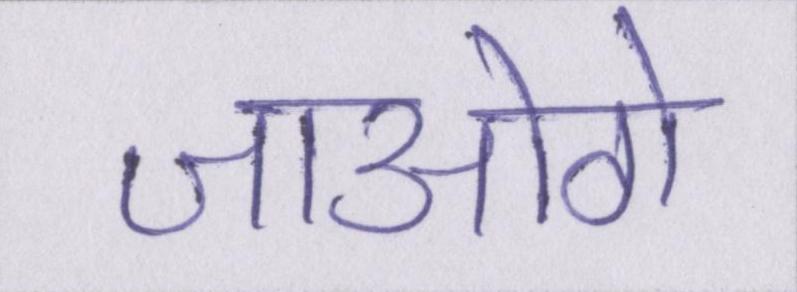 जाओगे